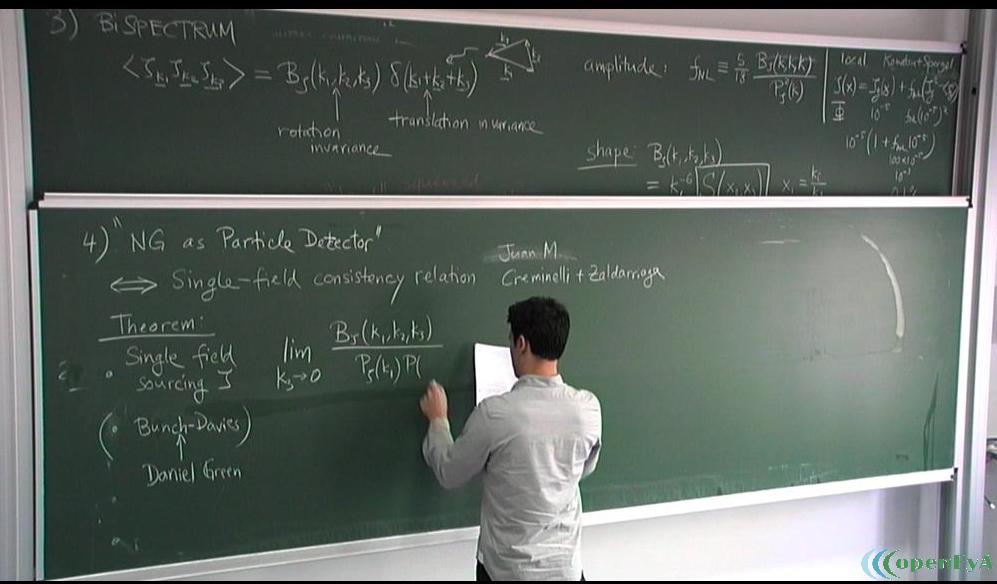 3) BISPECTRUM
⟨ζ_k₁ ζ_k₂ ζ_k₃⟩ = B_ζ(k₁,k₂,k₃) δ(k₁+k₂+k₃)
rotation invariance
translation invariance
amplitude: f_NL ≡ 5/18 B_ζ(k,k,k)/P_ζ²(k)
local Komatsu+Spergel
Φ 10⁻⁵ f_NL(10⁻⁵)²
10⁻⁵(1 + f_NL 10⁻⁵)
100×10⁻⁵
10⁻³
0.1%
shape: B_ζ(k₁,k₂,k₃)
= k₁⁻⁶ S(x₂,x₃)
4) "NG as Particle Detector"
⟺ Single-field consistency relation
Juan M.
Creminelli + Zaldarriaga
Theorem:
• Single field
sourcing ζ
lim k₃→0 B_ζ(k₁,k₂,k₃) / P_ζ(k₁) P(
(• Bunch-Davies)
Daniel Green
openEyA